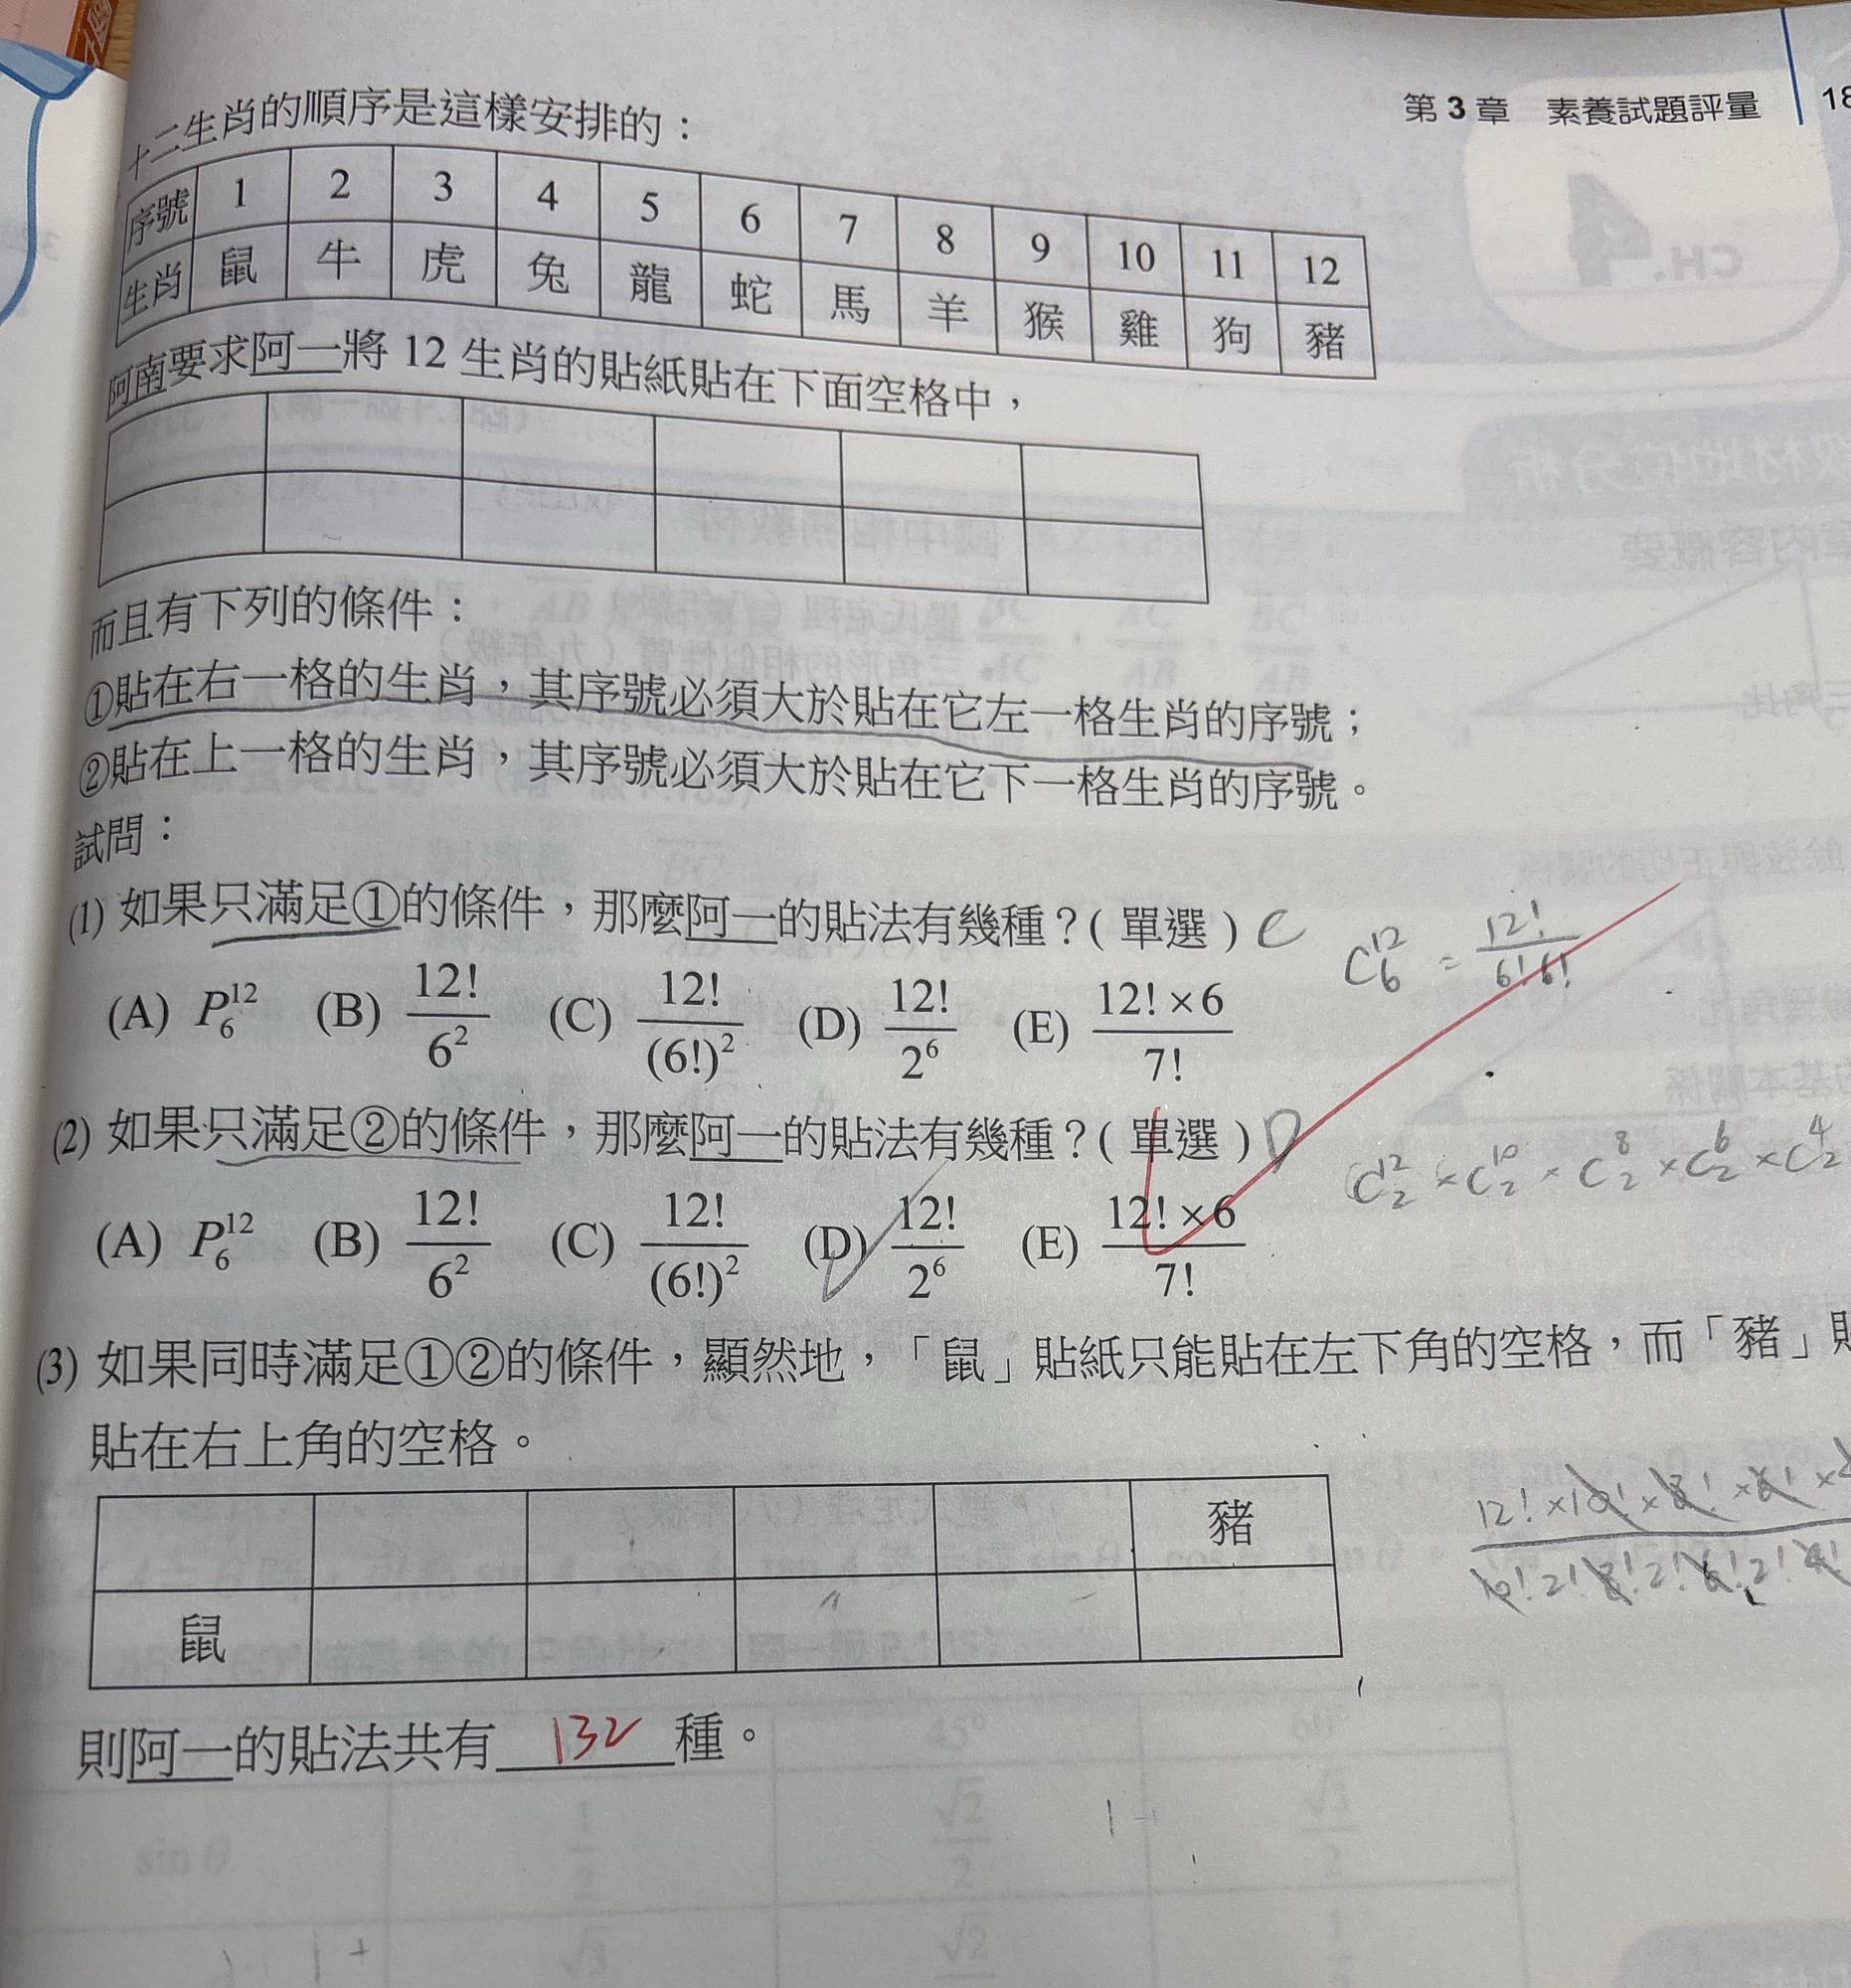 第 3 章 素養試題評量
十二生肖的順序是這樣安排的：
序號 1 2 3 4 5 6 7 8 9 10 11 12
生肖 鼠 牛 虎 兔 龍 蛇 馬 羊 猴 雞 狗 豬
阿南要求阿一將 12 生肖的貼紙貼在下面空格中，
而且有下列的條件：
①貼在右一格的生肖，其序號必須大於貼在它左一格生肖的序號；
②貼在上一格的生肖，其序號必須大於貼在它下一格生肖的序號。
試問：
(1) 如果只滿足①的條件，那麼阿一的貼法有幾種？( 單選 ) C
C^12_6 = 12!/6!6!
(A) P^12_6 (B) 12!/6^2 (C) 12!/(6!)^2 (D) 12!/2^6 (E) 12! × 6/7!
(2) 如果只滿足②的條件，那麼阿一的貼法有幾種？( 單選 ) D
C^12_2 × C^10_2 × C^8_2 × C^6_2 × C^4_2
(A) P^12_6 (B) 12!/6^2 (C) 12!/(6!)^2 (D) 12!/2^6 (E) 12! × 6/7!
(3) 如果同時滿足①②的條件，顯然地，「鼠」貼紙只能貼在左下角的空格，而「豬」
貼在右上角的空格。
豬
鼠
12! × 10! × 8! × 6! ×
10! 2! 8! 2! 6! 2! 4!
則阿一的貼法共有 132 種。